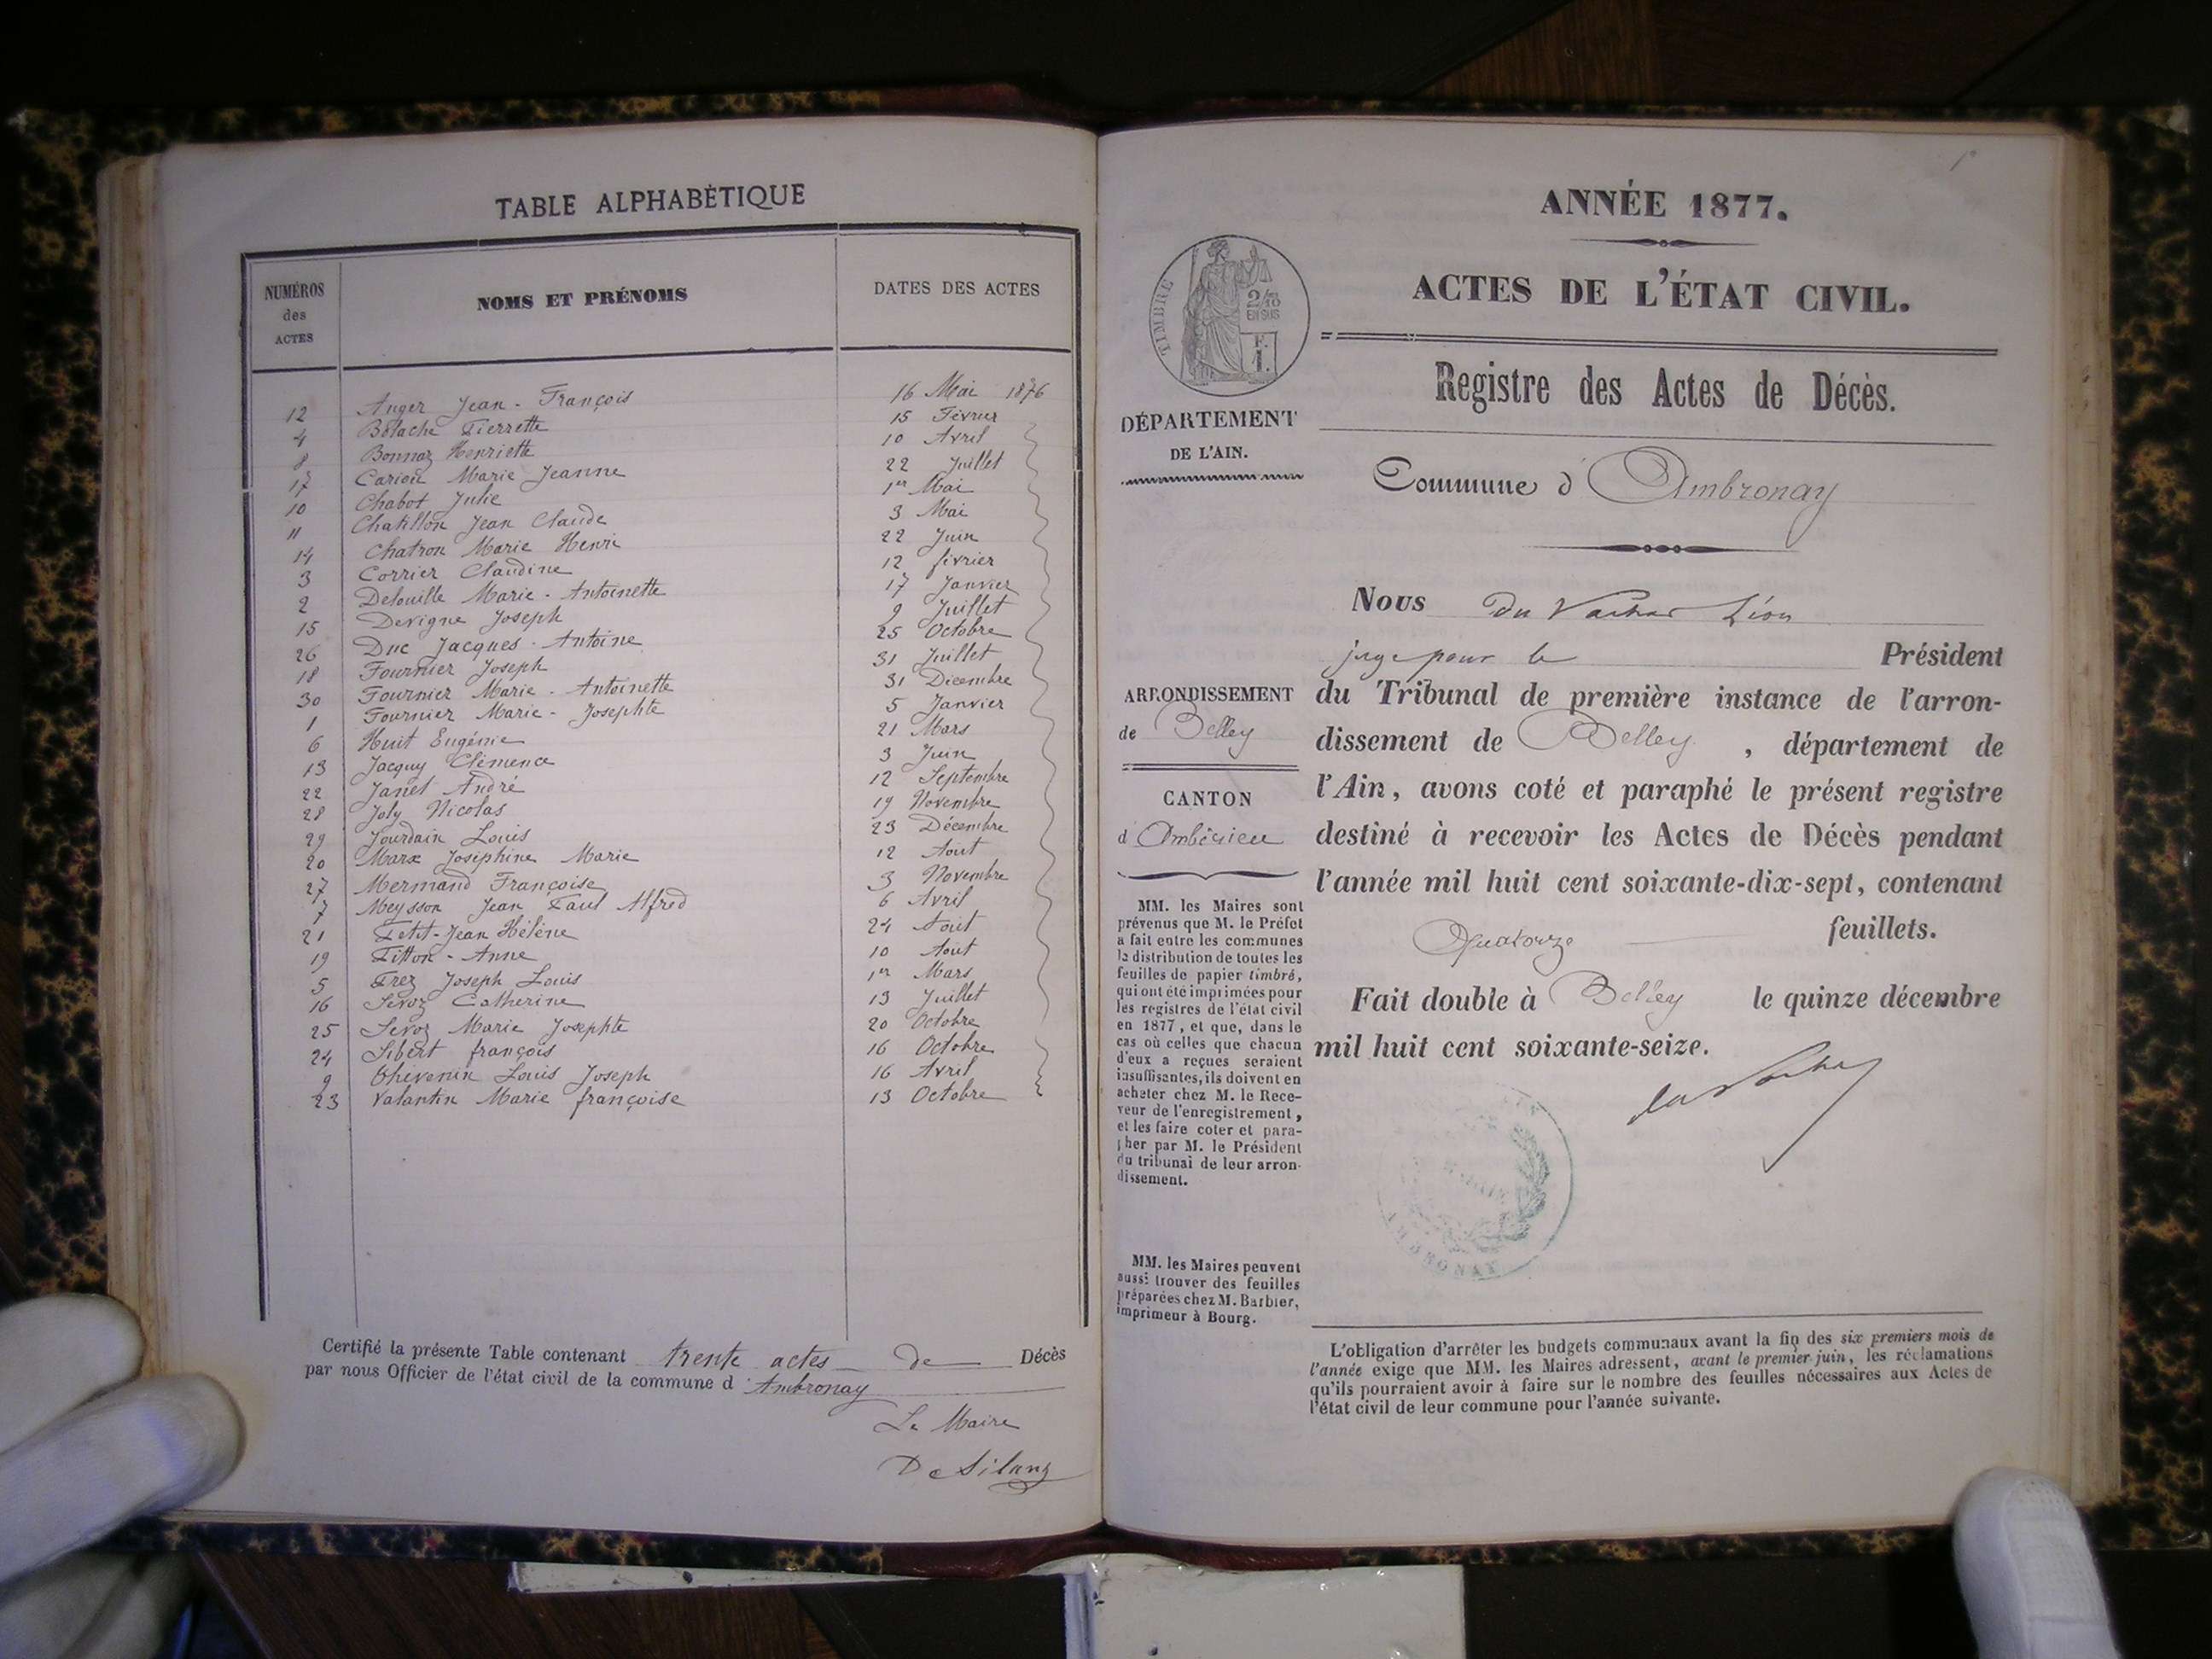 TABLE ALPHABÉTIQUE
NUMÉROS des ACTES NOMS ET PRÉNOMS DATES DES ACTES
12 Auger Jean-François 16 Mai 1876
4 Bolache Pierrette 15 Février
8 Bonnaz Henriette 10 Avril
17 Carion Marie Jeanne 22 Juillet
10 Chabot Julie 1er Mai
11 Chatillon Jean Claude 3 Mai
14 Chatron Marie Henri 22 Juin
3 Corrier Claudine 12 février
2 Delouille Marie-Antoinette 17 Janvier
15 Devigne Joseph 9 Juillet
26 Duc Jacques-Antoine 25 Octobre
18 Fournier Joseph 31 Juillet
30 Fournier Marie-Antoinette 31 Décembre
1 Fournier Marie-Josephte 5 Janvier
6 Huit Eugénie 21 Mars
13 Jacquy Clémence 3 Juin
22 Janet André 12 Septembre
28 Joly Nicolas 19 Novembre
29 Jourdain Louis 23 Décembre
20 Marx Joséphine Marie 12 Aout
27 Mermand Françoise 3 Novembre
7 Meysson Jean Paul Alfred 6 Avril
21 Petit-Jean Hélène 24 Aout
19 Pitton-Anne 10 Aout
5 Prez Joseph Louis 1er Mars
16 Sevoz Catherine 13 Juillet
25 Sevoz Marie Josephte 20 Octobre
24 Sibert françois 16 Octobre
9 Thévenin Louis Joseph 16 Avril
23 Valantin Marie françoise 13 Octobre
Certifié la présente Table contenant trente actes de Décès
par nous Officier de l'état civil de la commune d'Ambronay
Le Maire
De Silanz
1e
ANNÉE 1877.
ACTES DE L'ÉTAT CIVIL.
Registre des Actes de Décès.
Commune d'Ambronay
TIMBRE
2/10
EN SUS
F.
1.
DÉPARTEMENT
DE L'AIN.
ARRONDISSEMENT
de Belley
CANTON
d'Ambérieu
MM. les Maires sont
prévenus que M. le Préfet
a fait entre les communes
la distribution de toutes les
feuilles de papier timbré,
qui ont été imprimées pour
les registres de l'état civil
en 1877, et que, dans le
cas où celles que chacun
d'eux a reçues seraient
insuffisantes, ils doivent en
acheter chez M. le Rece-
veur de l'enregistrement,
et les faire coter et para-
pher par M. le Président
du tribunal de leur arron-
dissement.
MM. les Maires peuvent
aussi trouver des feuilles
préparées chez M. Barbier,
imprimeur à Bourg.
Nous Du Vachat Léon
juge pour le Président
du Tribunal de première instance de l'arron-
dissement de Belley, département de
l'Ain, avons coté et paraphé le présent registre
destiné à recevoir les Actes de Décès pendant
l'année mil huit cent soixante-dix-sept, contenant
Quatorze feuillets.
Fait double à Belley le quinze décembre
mil huit cent soixante-seize.
du Vachat
AMBRONAY
L'obligation d'arrêter les budgets communaux avant la fin des six premiers mois de
l'année exige que MM. les Maires adressent, avant le premier juin, les réclamations
qu'ils pourraient avoir à faire sur le nombre des feuilles nécessaires aux Actes de
l'état civil de leur commune pour l'année suivante.